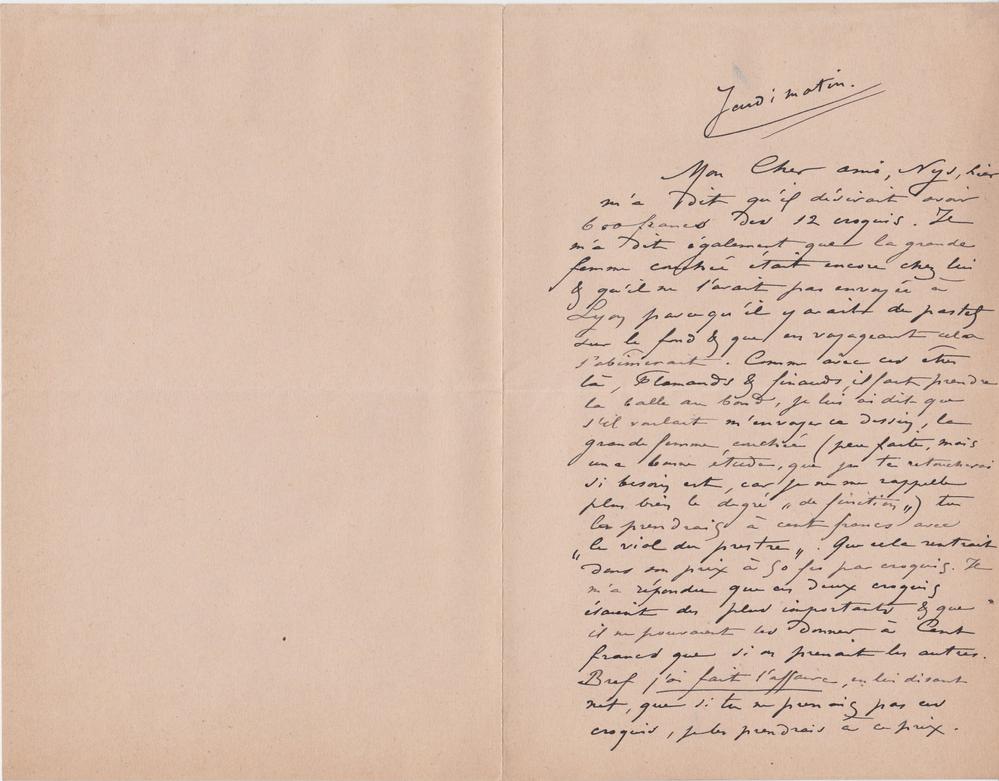 Jeudi matin.
Mon Cher ami, Nys, hier
m'a dit qu'il désirait avoir
600 francs des 12 croquis. Il
m'a dit également que la grande
femme couchée était encore chez lui
& qu'il ne l'avait pas envoyée à
Lyon parcequ'il y avait du pastel
sur le fond & que en voyageant cela
s'abimerait. Comme avec ces êtres
là, Flamands & finauds, il faut prendre
la balle au bond, je lui ai dit que
s'il voulait m'envoyer ce dessin, la
grande femme couchée (peu faite, mais
une bonne étude, que je te retoucherai
si besoin est, car je ne me rappelle
plus bien le degré "de finition") tu
les prendrais à cent francs avec
"le viol du prestre". Que cela rentrait
dans son prix à 50 frs par croquis. Il
m'a répondu que ces deux croquis
étaient des plus importants & que
il ne pouvait les donner à Cent
francs que si on prenait les autres.
Bref j'ai fait l'affaire, en lui disant
net, que si tu ne prenais pas ces
croquis, je les prendrais à ce prix.